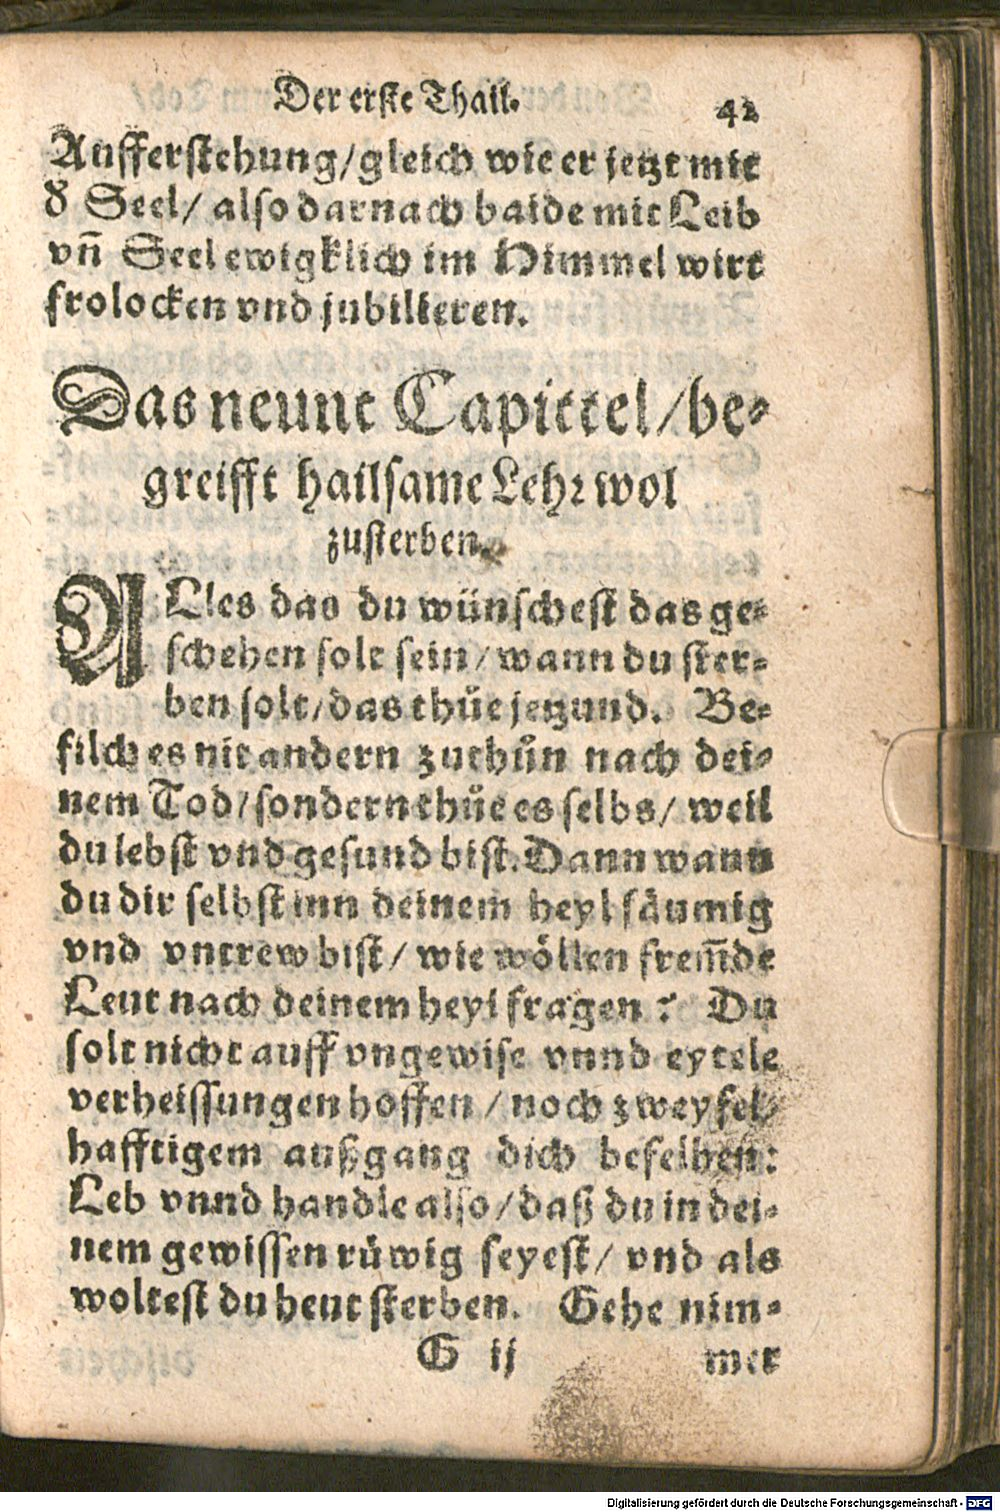 Der erste Thail. 42
Aufferstehung/gleich wie er jetzt mit
d̕ Seel/ also darnach baide mit Leib
vn̄ Seel ewigklich im Himmel wirt
frolocken vnd jubilieren.
Das neunt Capittel/be-
greifft hailsame Lehr wol
zusterben.
ALles das du wünschest das ge-
schehen solt sein/wann du ster-
ben solt/das thüe jetzund. Be-
filch es nit andern zuthůn nach dei-
nem Tod/sondern thüe es selbs/ weil
du lebst vnd gesund bist. Dann wann
du dir selbst inn deinem heyl säumig
vnd vntrew bist/ wie wöllen frem̄de
Leut nach deinem heyl fragen? Du
solt nicht auff vngewise vnnd eytele
verheissungen hoffen/noch zweyfel-
hafftigem außgang dich befelhen:
Leb vnnd handle also/daß du in dei-
nem gewissen rüwig seyest/ vnd als
woltest du heut sterben. Gehe nim-
G ij mer
Digitalisierung gefördert durch die Deutsche Forschungsgemeinschaft - DFG